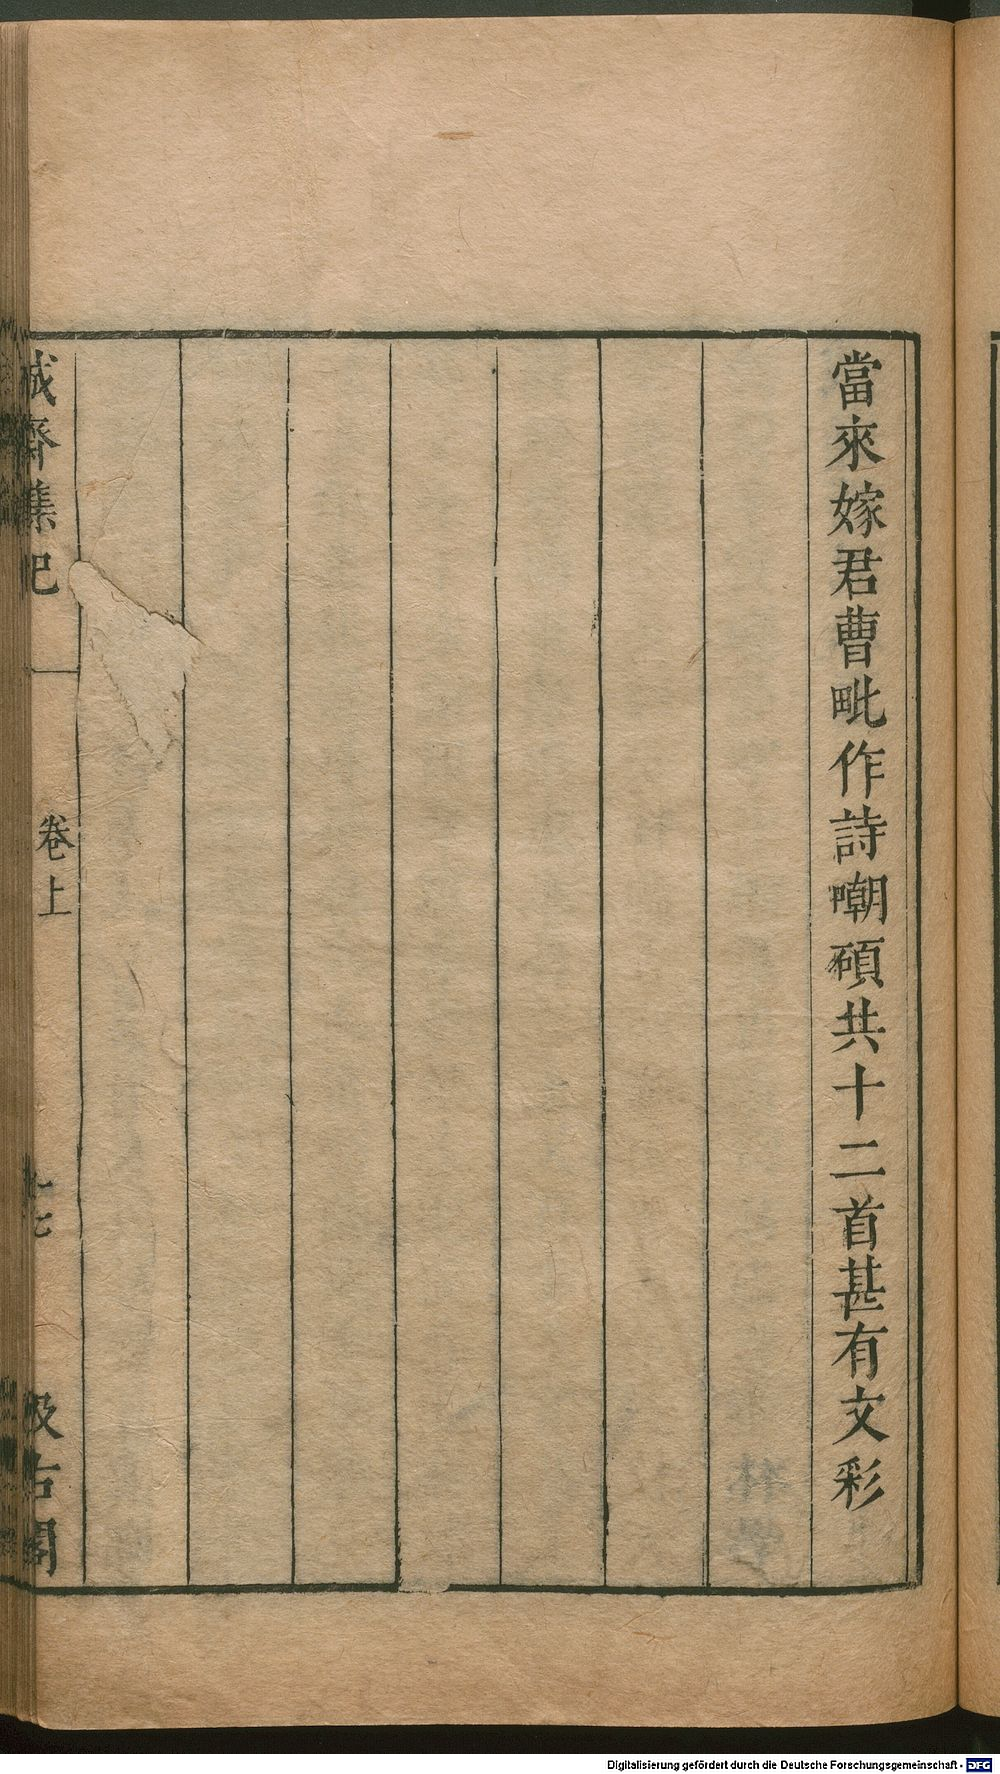 當來嫁君曹毗作詩嘲碩共十二首甚有文彩
誠齋雜記
卷上
十七
汲古閣
Digitalisierung gefördert durch die Deutsche Forschungsgemeinschaft - DFG